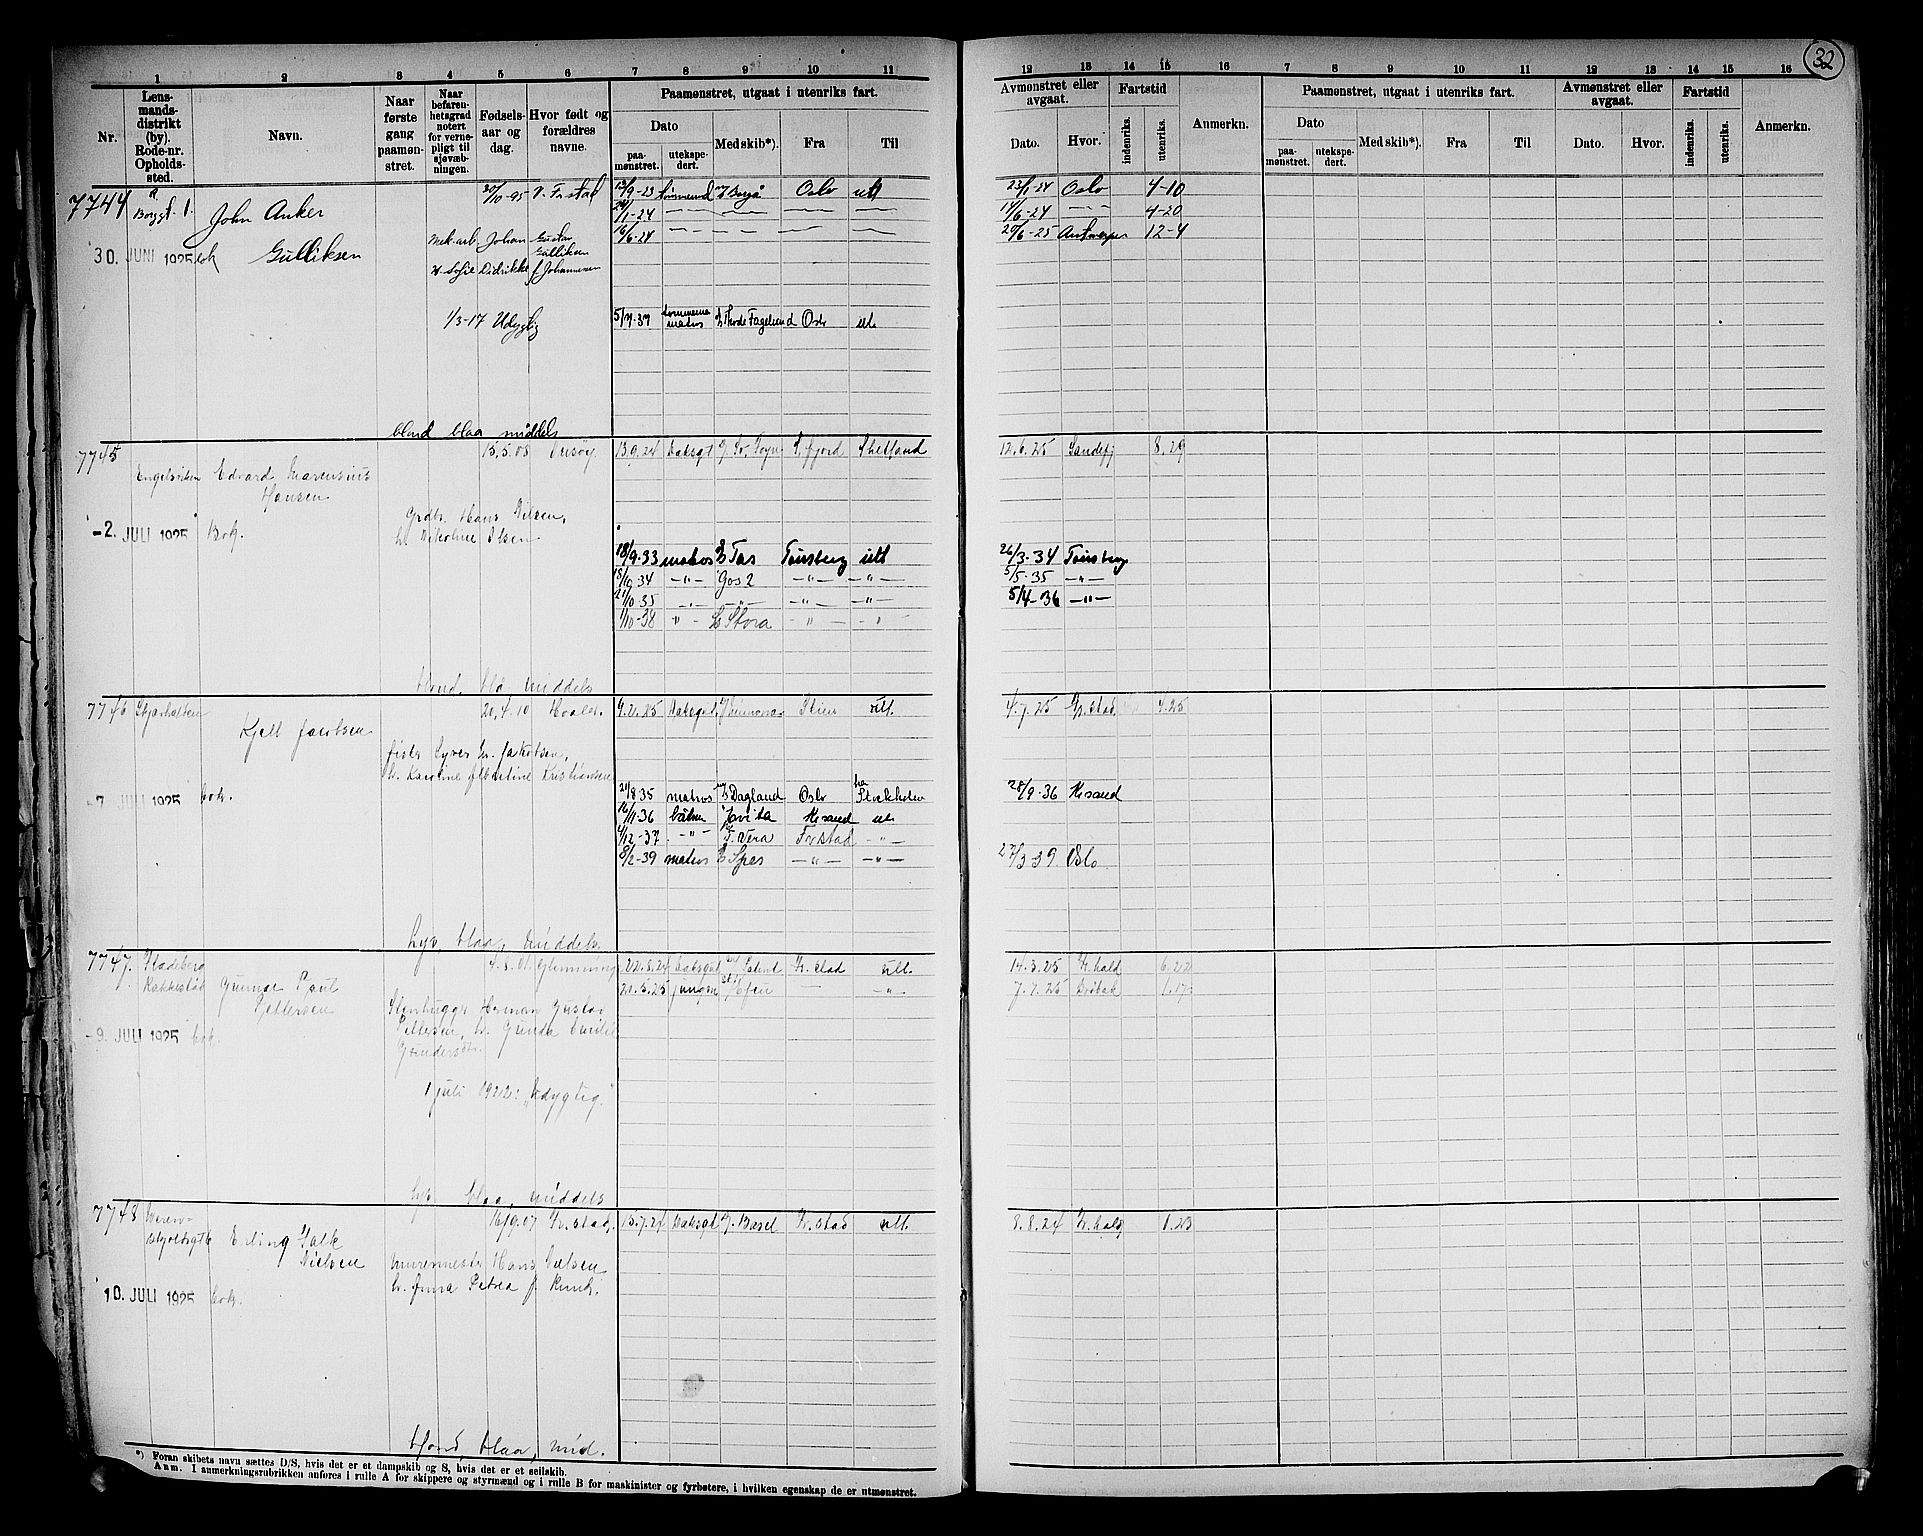 32
1 2 3 4 5 6 7 8 9 10 11
12 13 14 15 16 7 8 9 10 11 12 13 14 15 16
Nr.
Lens-
mands-
distrikt
(by).
Rode-nr.
Opholds-
sted.
Navn.
Naar
første
gang
paamøn-
stret.
Naar
befaren-
hetsgrad
notert
for verne-
pligt til
sjøvæb-
ningen.
Fødsels-
aar og
dag.
Hvor født og
forældres
navne.
Paamønstret, utgaat i utenriks fart.
Dato
paa-
mønstret.
utekspe-
dert.
Med skib*).
Fra
Til
Avmønstret eller
avgaat.
Dato.
Hvor.
Fartstid
indenriks.
utenriks.
Anmerkn.
Paamønstret, utgaat i utenriks fart.
Dato
paa-
mønstret.
utekspe-
dert.
Med skib*).
Fra
Til
Avmønstret eller
avgaat.
Dato.
Hvor.
Fartstid
indenriks.
utenriks.
Anmerkn.
7744 Borggt. 1. John Anker 20/10-95 Fr.stad 13/9-23 tømmermd Borgå Oslo utl 23/1-24 Oslo 4-10
24/1-24 — — — — 14/6-24 — — 4-20
16/6-24 — — — — 29/6-25 Antwerpen 12-4
30. JUNI 1925 bok Gulliksen
Mek.arb. Johan Gustav
Gulliksen
H. Sofie Didrikke f. Johannesen
1/3-17 Udygtig 5/9-39 tømmerm. matros Thode Fagelund Oslo utl.
blond blaa middels
7745 Engelsviken Edvard Marensius 15.5.08 Onsøy 13.9.24 Dæksgt Sv. Foyn S.fjord Shetland 12.6.25 Sandefj 8.29
Hansen
Grdbr. Hans Nilsen,
-2. JULI 1925 Bok. h. Nikoline Olsen
18/9-33 matros Tas Tønsberg utl 26/3-34 Tønsberg
18/10-34 —"— Gos 2 —"— —"— 5/5-35 —"—
21/10-35 —"— —"— —"— —"— 5/4-36 —"—
1/10-38 —"— Stora —"— —"—
blond, blå middels
7746 Skjærhalden Kjell Jacobsen 20.4.10 Hvaler. 9.2.25 Dæksgut Skien utl. 4.7.25 Fr.stad 4.25
fisker Syver Jakobsen,
h. Karoline Albertine Kristiansen
-7. JULI 1925 bok. 21/8-35 matros Dagland Oslo fra Stockholm 28/9-36 Kr.sand
16/11-36 båtsm Javita Kr.sand utl
4/12-37 —"— Vera Fr.stad —"—
8/2-39 matros Spes —"— —"— 27/3-39 Oslo
Lys, blaa, middels
7747. Rakkestad Gunnar Paul 4.8.01. Glemminge 22.8.24 Dæksgut Patent Fr.stad utl. 14.3.25 Fr.hald 6.22
Pettersen 20.5.25 jungm — —"— 7.7.25 Drøbak 1.17
Stenhugger Herman Gustav
Pettersen, h. Gunda Emilie
-9. JULI 1925 bok. Gundersdtr.
1 juli 1922: "Udygtig"
Lys blaa, middels
7748 Erling Falk 16/9.07 Fr.stad, 15.7.24 Dæksgt Basel Fr.stad utl. 8.8.24 Fr.hald 1.23
Nielsen
murermester Hans Nielsen
h. Anna Petrea f. Kundt.
10. JULI 1925 bok.
blond, blaa, mid.
*) Foran skibets navn sættes D/S, hvis det er et dampskib og S, hvis det er et seilskib.
Anm. I anmerkningsrubrikken anføres i rulle A for skippere og styrmænd og i rulle B for maskinister og fyrbøtere, i hvilken egenskap de er utmønstret.